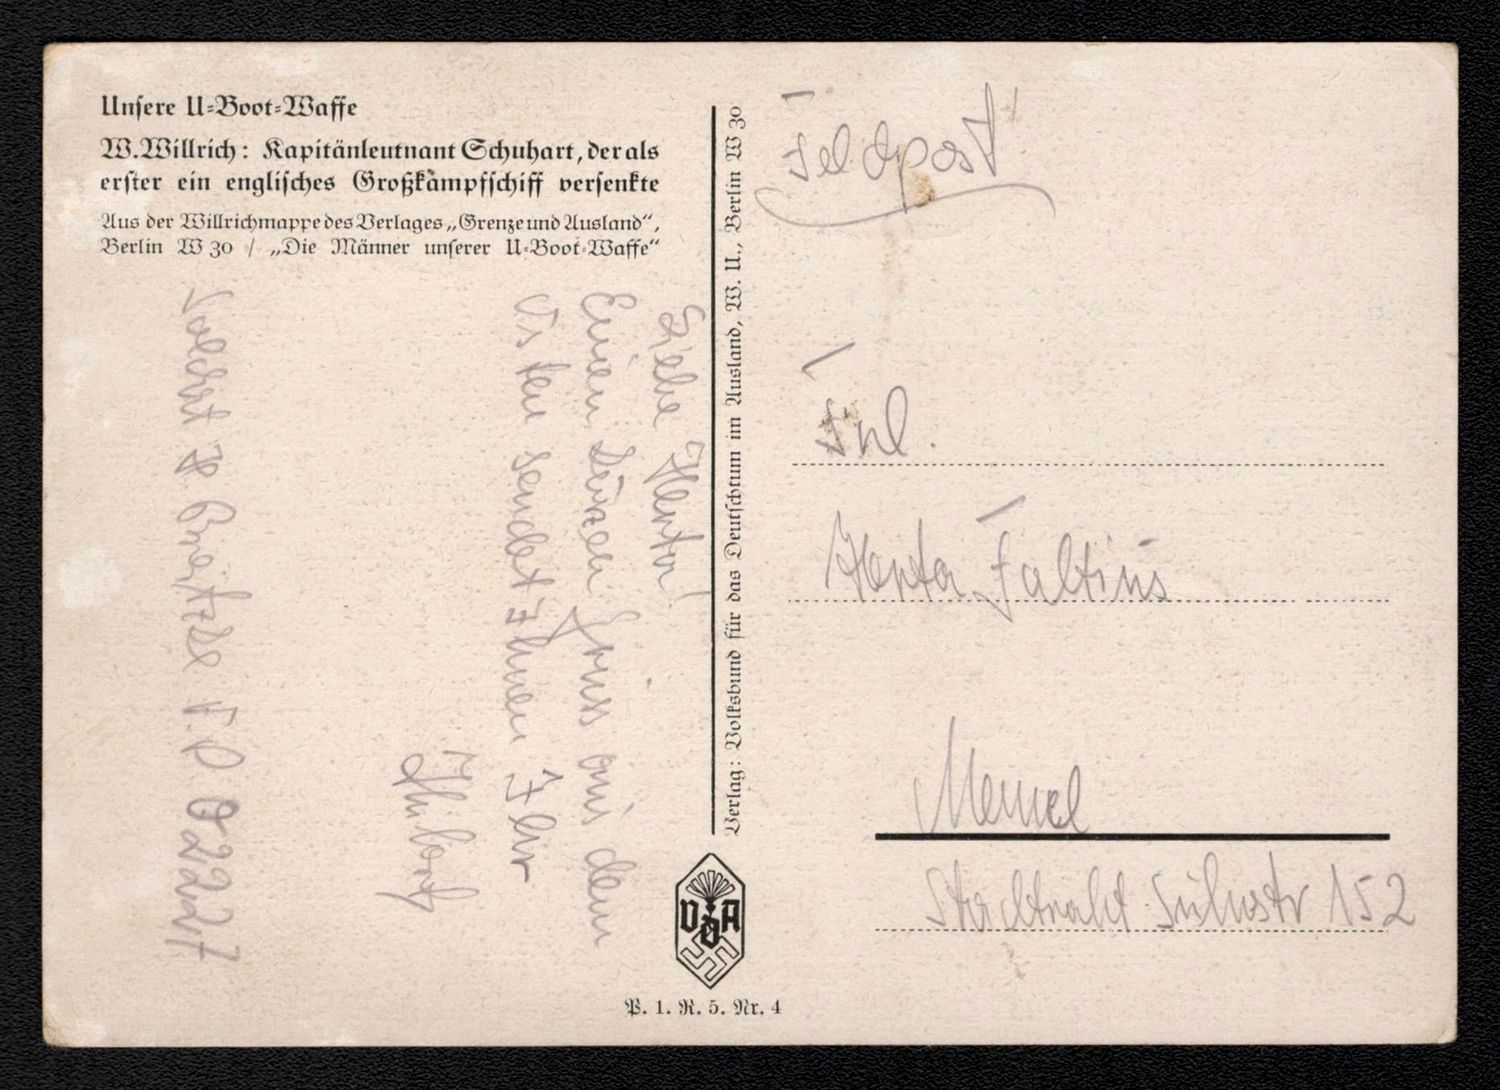 Unsere U-Boot-Waffe
W. Willrich: Kapitänleutnant Schuhart, der als
erster ein englisches Großkampfschiff versenkte
Aus der Willrichmappe des Verlages „Grenze und Ausland“,
Berlin W 30 / „Die Männer unserer U-Boot-Waffe“
Liebe Herta!
Einen kurzen Gruss aus dem
Osten sendet Ihnen Ihr
Soldat H F.P 02227
Verlag: Volksbund für das Deutschtum im Ausland, W. U., Berlin W 30
VDA
P. 1. R. 5. Nr. 4
Feldpost
Frl.
Herta Faltins
Memel
152